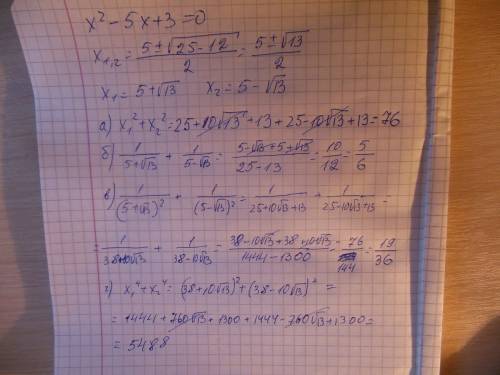 x² - 5x + 3 = 0
x₁,₂ = (5 ± √(25 - 12))/2 = (5 ± √13)/2
x₁ = 5 + √13   x₂ = 5 - √13
а) x₁² + x₂² = 25 + 10√13 + 13 + 25 - 10√13 + 13 = 76
б) 1/(5+√13) + 1/(5-√13) = (5 - √13 + 5 + √13)/(25 - 13) = 10/12 = 5/6
в) 1/(5+√13)² + 1/(5-√13)² = 1/(25+10√13+13) + 1/(25-10√13+13) =
= 1/(38+10√13) + 1/(38-10√13) = (38 - 10√13 + 38 + 10√13)/(1444 - 1300) = 76/144 = 19/36
г) x₁⁴ + x₂⁴ = (38 + 10√13)² + (38 - 10√13)² =
= 1444 + 760√13 + 1300 + 1444 - 760√13 + 1300 =
= 5488